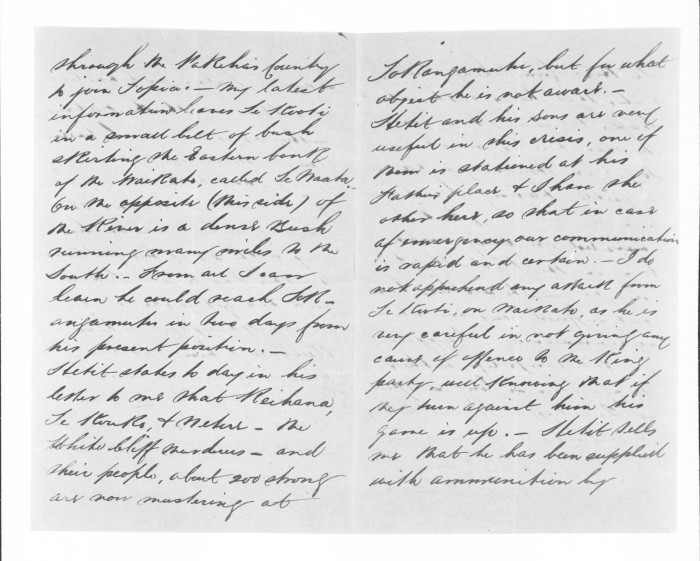 through the Pakehas Country
to join Topia. — My latest
information leaves Te Kooti
in a small belt of bush
skirting the Eastern bank
of the Waikato, called Te
On the opposite (this side) of
the River is a dense Bush
running many miles to the
South. — From all I can
learn he could reach Tok-
angamutu in two days from
his present position. —
Hetit states to day in his
letter to me that Reihana,
Te & Netere — the
White Cliff murderers — and
their people, about 200 strong
are now mustering at
Tokangamutu, but for what
object he is not aware. —
Hetit and his sons are very
useful in this crisis, one of
them is stationed at his
Fathers place & I have the
other here, so that in case
of emergency our communication
is rapid and certain. — I do
not apprehend any attack from
Te Kooti, on Waikato, as he is
very careful in not giving any
cause of offence to the King
party, well knowing that if
they turn against him his
game is up. — Hetit tells
me that he has been supplied
with ammunition by